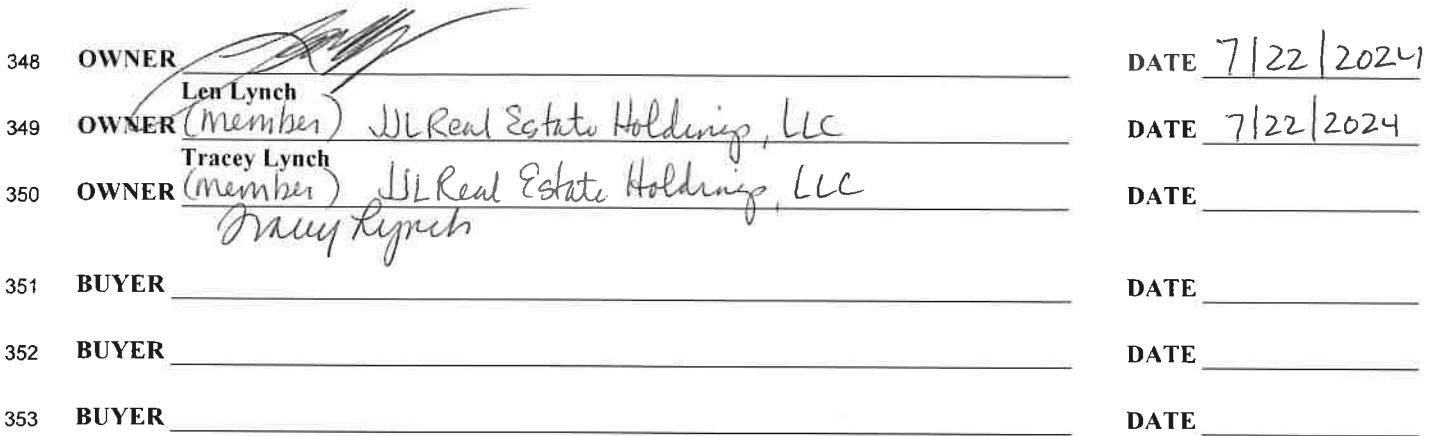 348 OWNER DATE 7/22/2024
Len Lynch
349 OWNER (member) JJL Real Estate Holdings, LLC DATE 7/22/2024
Tracey Lynch
350 OWNER (member) JJL Real Estate Holdings, LLC DATE
Tracey Lynch
351 BUYER DATE
352 BUYER DATE
353 BUYER DATE